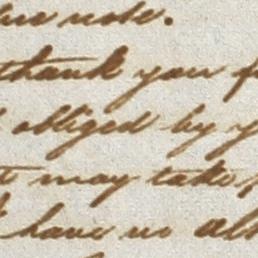 note.
thank you f
obliged by y
may take,
have no als